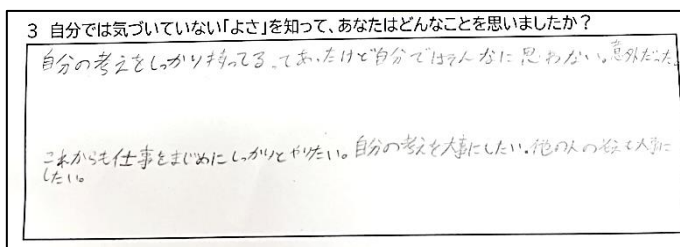 3 自分では気づいていない「よさ」を知って、あなたはどんなことを思いましたか？
自分の考えをしっかり持ってる。ってあったけど自分ではそんなに思わない。意外だった。
これからも仕事をまじめにしっかりとやりたい。自分の考えを大事にしたい。他の人の考えも大事に
したい。